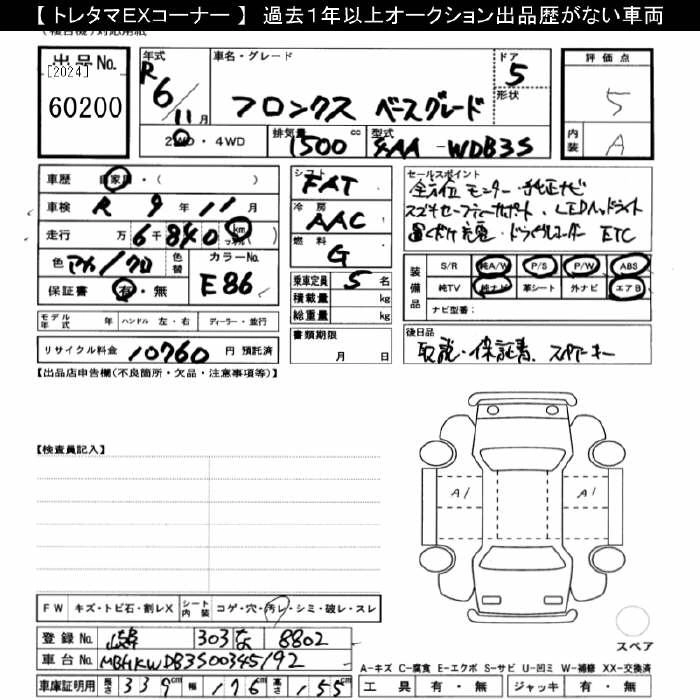 【 トレタマEXコーナー 】 過去1年以上オークション出品歴がない車両
出品No.
[2024]
60200
年式
R
6/11月
車名・グレード
フロンクス ベースグレード
ドア
5
形状
2WD・4WD
排気量
1500cc
型式
5AA-WDB3S
評価点
5
内装
A
車歴 自家用・( )
車検 R 9年11月
走行 万6千840 km マイル
色 アカ/クロ 色替
カラーNo.
E86
保証書 有・無
シフト
FAT
冷房
AAC
燃料
G
乗車定員 5名
積載量 kg
総重量 kg
書類期限
月 日
セールスポイント
全方位モニター・純正ナビ
スズキセーフティーサポート・LEDヘッドライト
置くだけ充電・ドラレコーダー ETC
装備品
S/R 純A/W P/S P/W ABS
純TV 純ナビ 革シート 外ナビ エアB
ナビ型番:
モデル年式 年 ハンドル 左・右 ディーラー・並行
リサイクル料金 10760円 預託済
後日品
取説・保証書、スペアキー
【出品店申告欄(不良箇所・欠品・注意事項等)】
【検査員記入】
A1
A1
FW キズ・トビ石・割レX シート内装 コゲ・穴・汚レ・シミ・破レ・スレ
登録No. 303 8802
車台No. MBHKWDB3S00345192
車庫証明用 長さ 339cm 幅 176cm 高さ 155cm
スペア
A-キズ C-腐食 E-エクボ S-サビ U-凹ミ W-補修 XX-交換済
工具 有・無 ジャッキ 有・無